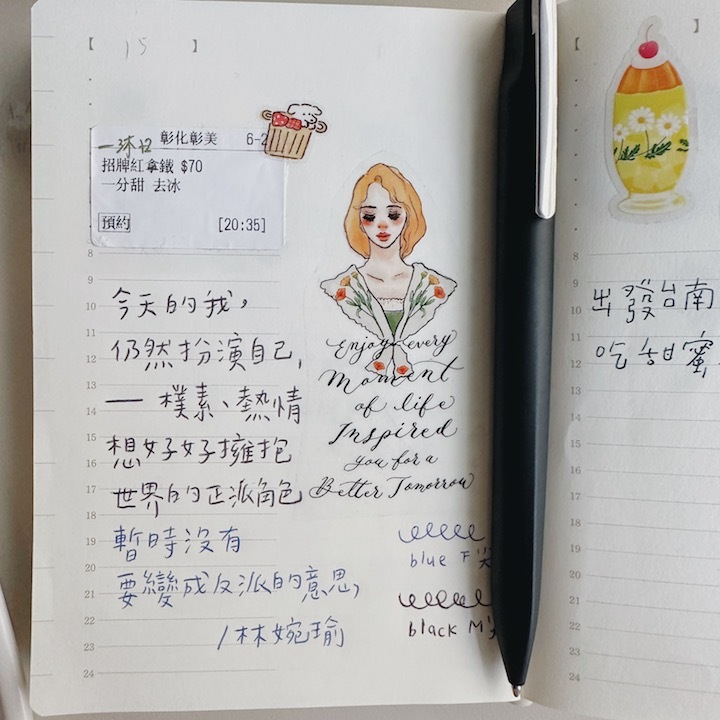 【 15 】
一沐日 彰化彰美 6-2
招牌紅拿鐵 $70
一分甜 去冰
預約 [20:35]
8
9
10
11
12
13
14
15
16
17
18
19
20
21
22
23
24
今天的我，
仍然扮演自己，
— 樸素、熱情
想好好擁抱
世界的正派角色
暫時沒有
要變成反派的意思，
/林婉瑜
Enjoy every
Moment
of life
Inspired
you for a
Better Tomorrow
blue F尖
black M尖
【 】
出發台南
吃甜蜜
19
20
21
22
23
24